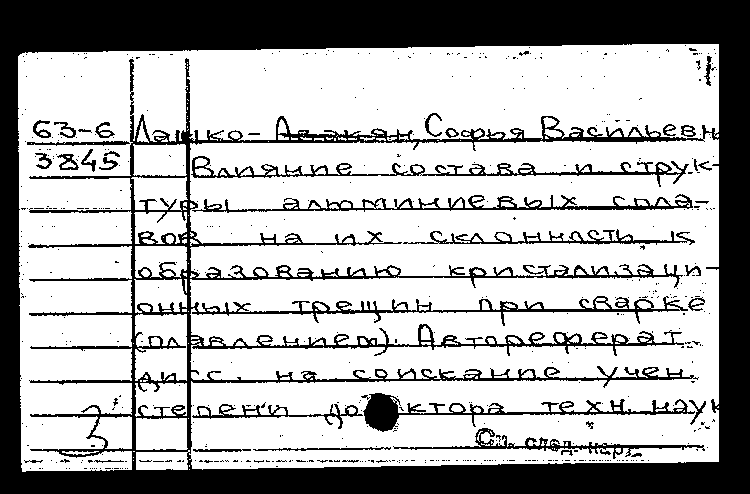 63-6 Лашко-Авакян, Софья Васильевн
3845 Влияние состава и струк-
туры алюминиевых спла-
вов на их склонность к
образованию кристаллизаци-
онных трещин при сварке
(плавлением). Автореферат
дисс. на соискание учен.
степени доктора техн. наук
3
См. след. кар.